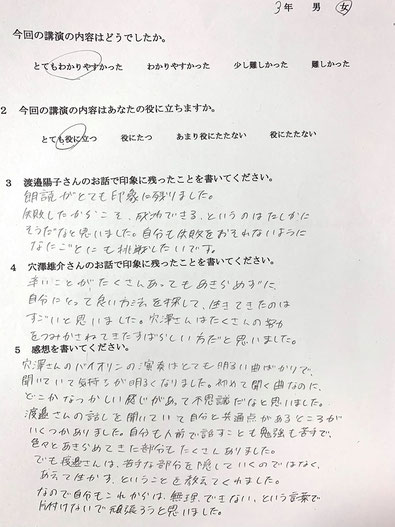 3年 男 女
今回の講演の内容はどうでしたか。
とてもわかりやすかった わかりやすかった 少し難しかった 難しかった
2 今回の講演の内容はあなたの役に立ちますか。
とても役に立つ 役にたつ あまり役にたたない 役にたたない
3 渡邉陽子さんのお話で印象に残ったことを書いてください。
朗読がとても印象に残りました。
失敗したからこそ、成功できる、というのはたしかに
そうだなと思いました。自分も失敗をおそれないように
なにごとにも挑戦したいです。
4 穴澤雄介さんのお話で印象に残ったことを書いてください。
辛いことがたくさんあってもあきらめずに、
自分にとって良い方法を探して、生きてきたのは
すごいと思いました。穴澤さんはたくさんの努力
をつみかさねてきたすばらしい方だと思いました。
5 感想を書いてください。
穴澤さんのバイオリンの演奏はとても明るい曲ばかりで、
聞いていて気持ちが明るくなりました。初めて聞く曲なのに、
どこかなつかしい感じがあって不思議だなと思いました。
渡邉さんの話しを聞いていて自分と共通点があるところが
いくつかありました。自分も人前で話すことも勉強も苦手で、
色々とあきらめてきた部分もたくさんありました。
でも渡邉さんは、苦手な部分を隠していくのではなく、
あえて生かす、ということを教えてくれました。
なので自分もこれからは、無理、できない、という言葉で
片付けないで頑張ろうと思いました。